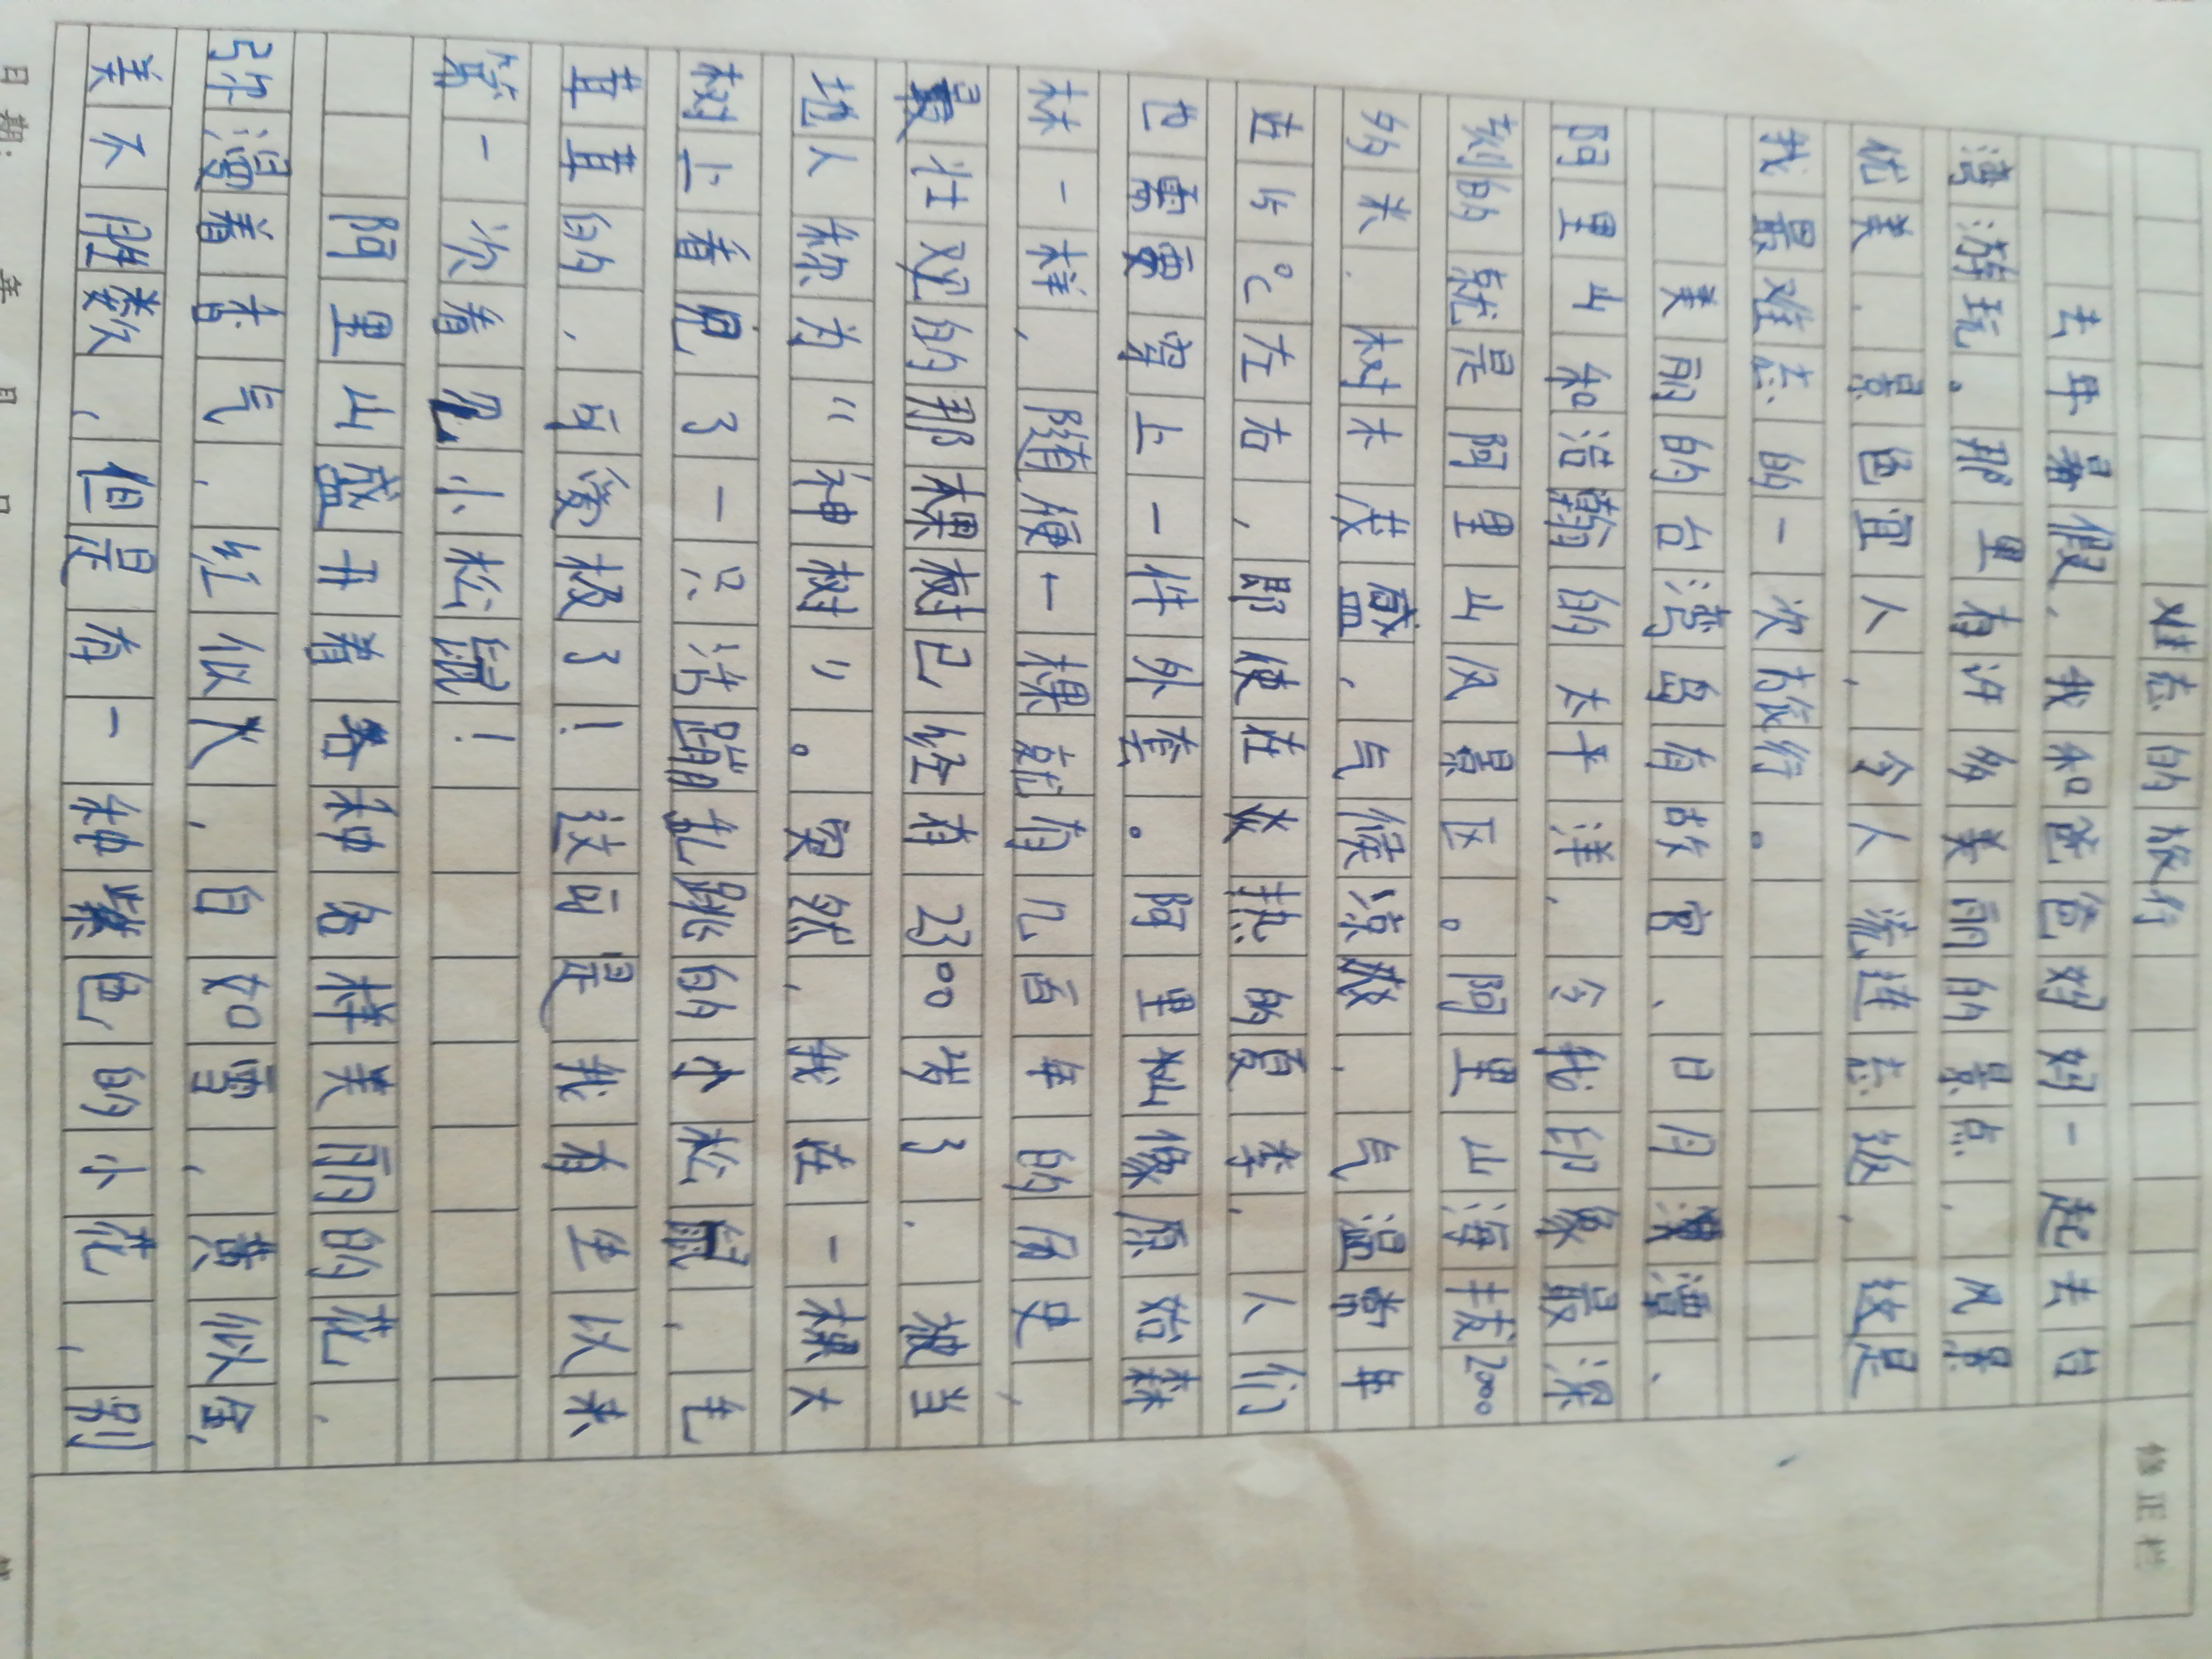 难忘的旅行
修正栏
去年暑假，我和爸爸妈妈一起去台
湾游玩。那里有许多美丽的景点，风景
优美，景色宜人，令人流连忘返，故是
我最难忘的一次旅行。
美丽的台湾岛有故宫、日月潭、
阿里山和浩瀚的太平洋，令我印象最深
刻的就是阿里山风景区。阿里山海拔2000
多米，树木茂盛，气候凉爽，气温常年
在15℃左右，即使在炎热的夏季，人们
也需要穿上一件外套。阿里山像原始森
林一样，随便一棵就有几百年的历史，
最壮观的那棵树已经有2300岁了，被当
地人称为“神树”。突然，我在一棵大
树上看见了一只活蹦乱跳的小松鼠，毛
茸茸的，可爱极了！这可是我有生以来
第一次看见小松鼠！
阿里山盛开着各种各样美丽的花，
弥漫着香气，红似火，白如雪，黄似金，
美不胜数，但是有一种紫色的小花，别
日期： 年 月 日